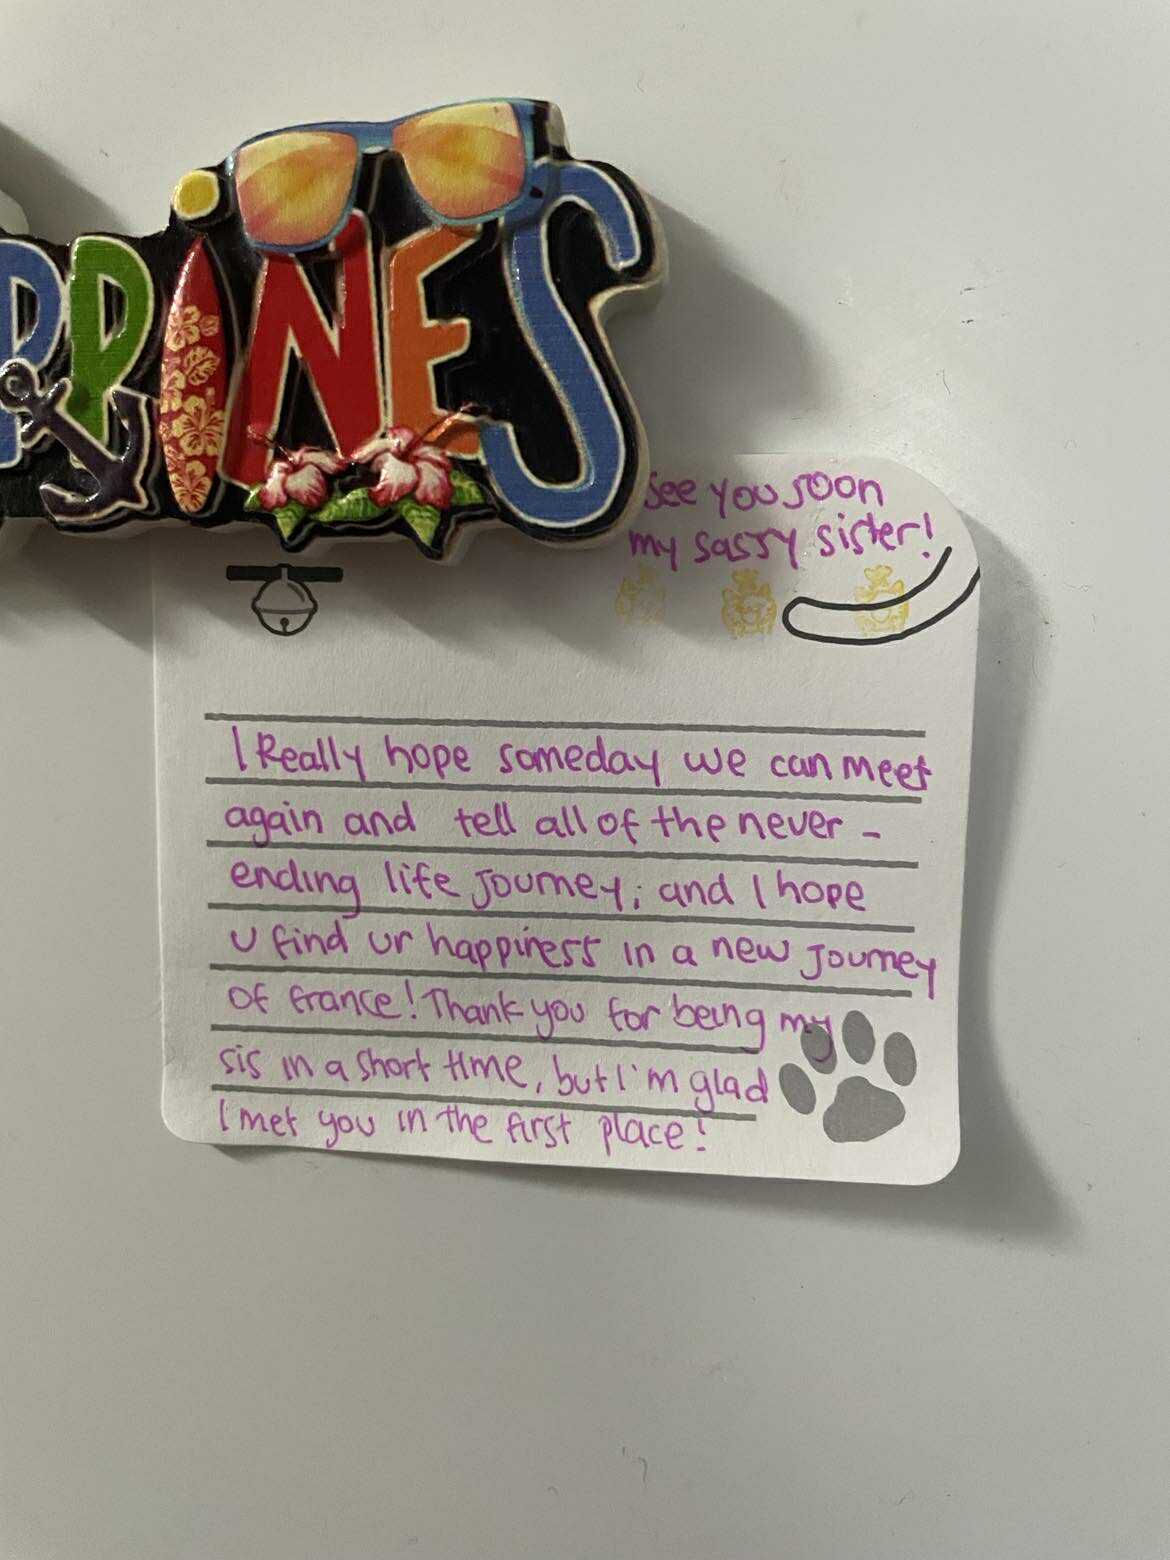 PPINES
See you soon
my sassy sister!
I Really hope someday we can meet
again and tell all of the never -
ending life journey; and I hope
u find ur happiness in a new journey
of france! Thank you for being my
sis in a short time, but I'm glad
I met you in the first place!